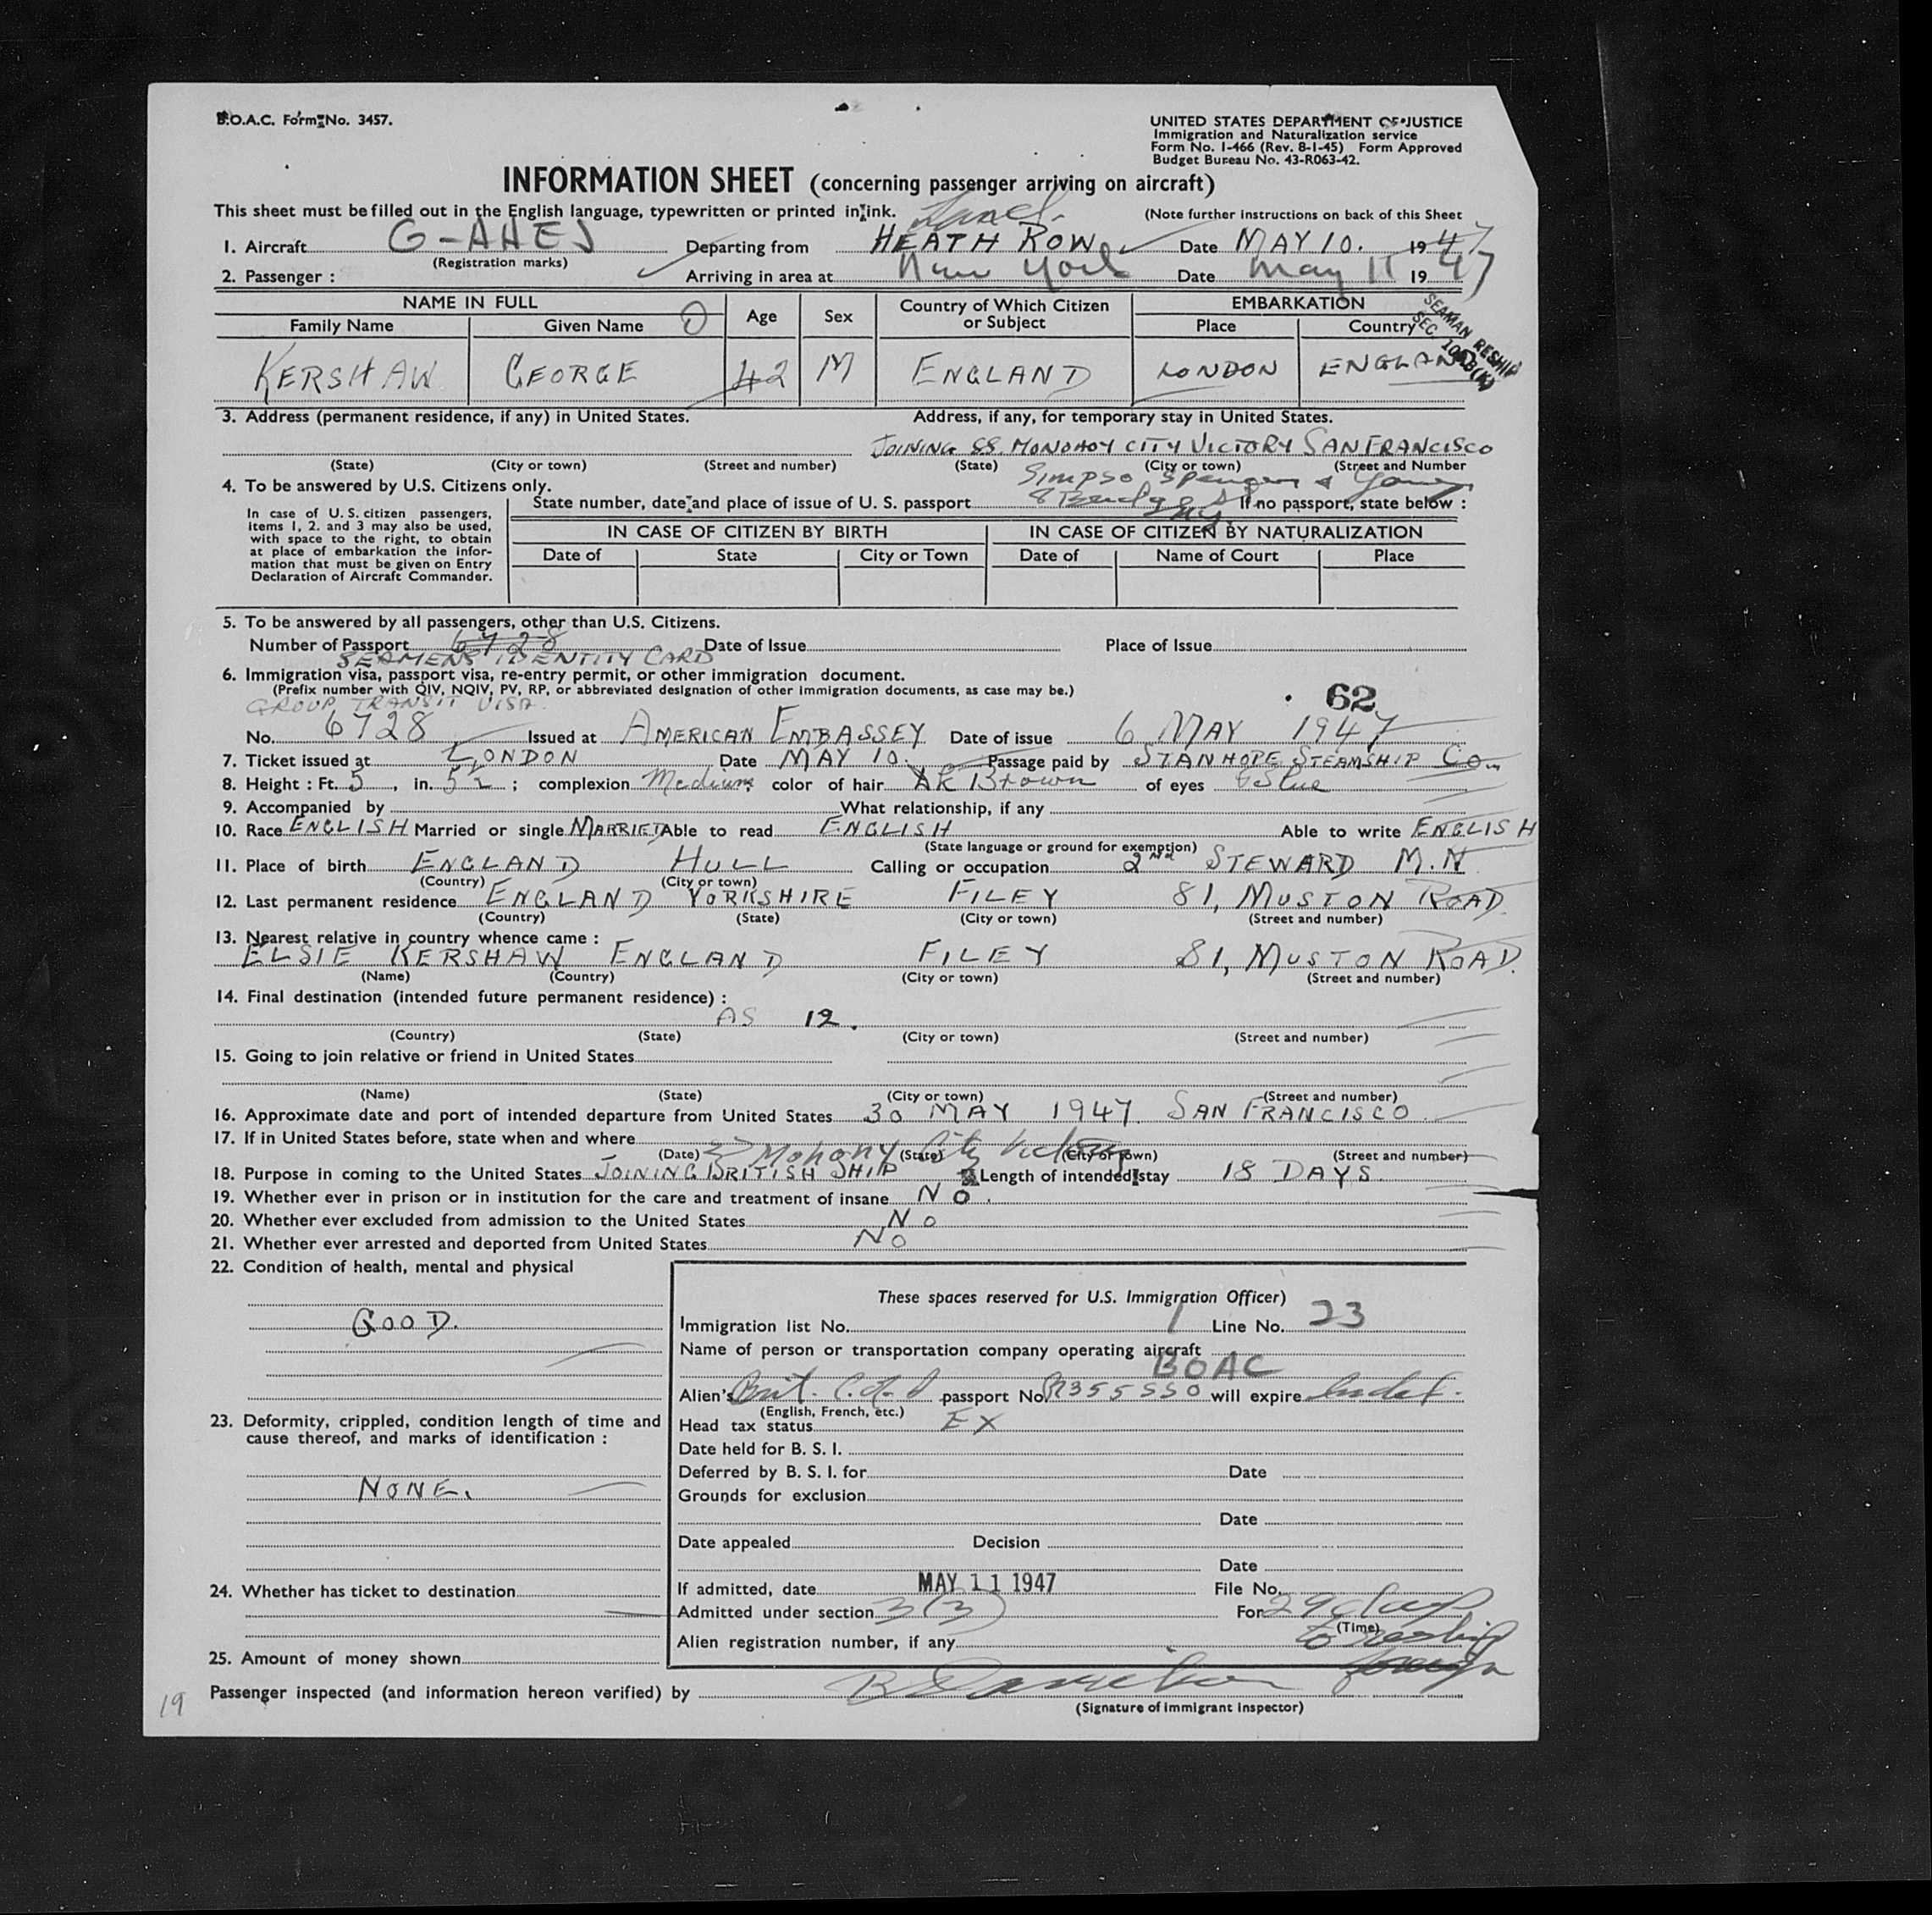 B.O.A.C. Form No. 3457.
UNITED STATES DEPARTMENT OF JUSTICE
Immigration and Naturalization service
Form No. I-466 (Rev. 8-1-45) Form Approved
Budget Bureau No. 43-R063-42.
INFORMATION SHEET (concerning passenger arriving on aircraft)
This sheet must be filled out in the English language, typewritten or printed in ink.
(Note further instructions on back of this Sheet
1. Aircraft G-AHEJ Departing from HEATH ROW Date MAY 10. 1947
(Registration marks)
2. Passenger : Arriving in area at New York Date May 11 1947
NAME IN FULL Age Sex Country of Which Citizen or Subject EMBARKATION
Family Name Given Name Place Country
SEAMAN RESHIP
KERSHAW GEORGE 42 M ENGLAND LONDON ENGLAND
3. Address (permanent residence, if any) in United States. Address, if any, for temporary stay in United States.
JOINING SS. MONOHOY CITY VICTORY SANFRANCISCO
(State) (City or town) (Street and number) (State) (City or town) (Street and Number
Simpso Spencer & Young
4. To be answered by U.S. Citizens only.
State number, date and place of issue of U. S. passport 8 Bridge St If no passport, state below :
In case of U. S. citizen passengers,
items 1, 2. and 3 may also be used,
with space to the right, to obtain
at place of embarkation the infor-
mation that must be given on Entry
Declaration of Aircraft Commander.
IN CASE OF CITIZEN BY BIRTH IN CASE OF CITIZEN BY NATURALIZATION
Date of State City or Town Date of Name of Court Place
5. To be answered by all passengers, other than U.S. Citizens.
Number of Passport 6728 Date of Issue Place of Issue
SEAMENS IDENTITY CARD
6. Immigration visa, passport visa, re-entry permit, or other immigration document.
(Prefix number with QIV, NQIV, PV, RP, or abbreviated designation of other immigration documents, as case may be.)
62
GROUP TRANSIT VISA
No. 6728 Issued at AMERICAN EMBASSEY Date of issue 6 MAY 1947
7. Ticket issued at LONDON Date MAY 10. Passage paid by STANHOPE STEAMSHIP Co.
8. Height : Ft. 5, in. 5½ ; complexion Medium; color of hair DK Brown of eyes Blue
9. Accompanied by What relationship, if any
10. Race ENGLISH Married or single MARRIED Able to read ENGLISH Able to write ENGLISH
(State language or ground for exemption)
11. Place of birth ENGLAND HULL Calling or occupation 2nd STEWARD M.N
(Country) (City or town)
12. Last permanent residence ENGLAND YORKSHIRE FILEY 81, MUSTON ROAD
(Country) (State) (City or town) (Street and number)
13. Nearest relative in country whence came :
ELSIE KERSHAW ENGLAND FILEY 81, MUSTON ROAD.
(Name) (Country) (City or town) (Street and number)
14. Final destination (intended future permanent residence) :
AS 12.
(Country) (State) (City or town) (Street and number)
15. Going to join relative or friend in United States
(Name) (State) (City or town) (Street and number)
16. Approximate date and port of intended departure from United States 30 MAY 1947. SAN FRANCISCO.
17. If in United States before, state when and where
(Date) (State) (City or town) (Street and number)
SS Mohony City Victory
18. Purpose in coming to the United States JOINING BRITISH SHIP Length of intended stay 18 DAYS.
19. Whether ever in prison or in institution for the care and treatment of insane No.
20. Whether ever excluded from admission to the United States No
21. Whether ever arrested and deported from United States No
22. Condition of health, mental and physical
GOOD.
23. Deformity, crippled, condition length of time and
cause thereof, and marks of identification :
NONE.
24. Whether has ticket to destination
25. Amount of money shown
These spaces reserved for U.S. Immigration Officer)
Immigration list No. 1 Line No. 23
Name of person or transportation company operating aircraft
BOAC
Alien's Brit. passport No. R355550 will expire Indef.
(English, French, etc.)
Head tax status EX
Date held for B. S. I.
Deferred by B. S. I. for Date
Grounds for exclusion
Date
Date appealed Decision
Date
If admitted, date MAY 11 1947 File No.
Admitted under section 3(3) For 29 days
(Time)
to reship
foreign
Alien registration number, if any
19
Passenger inspected (and information hereon verified) by
(Signature of Immigrant Inspector)